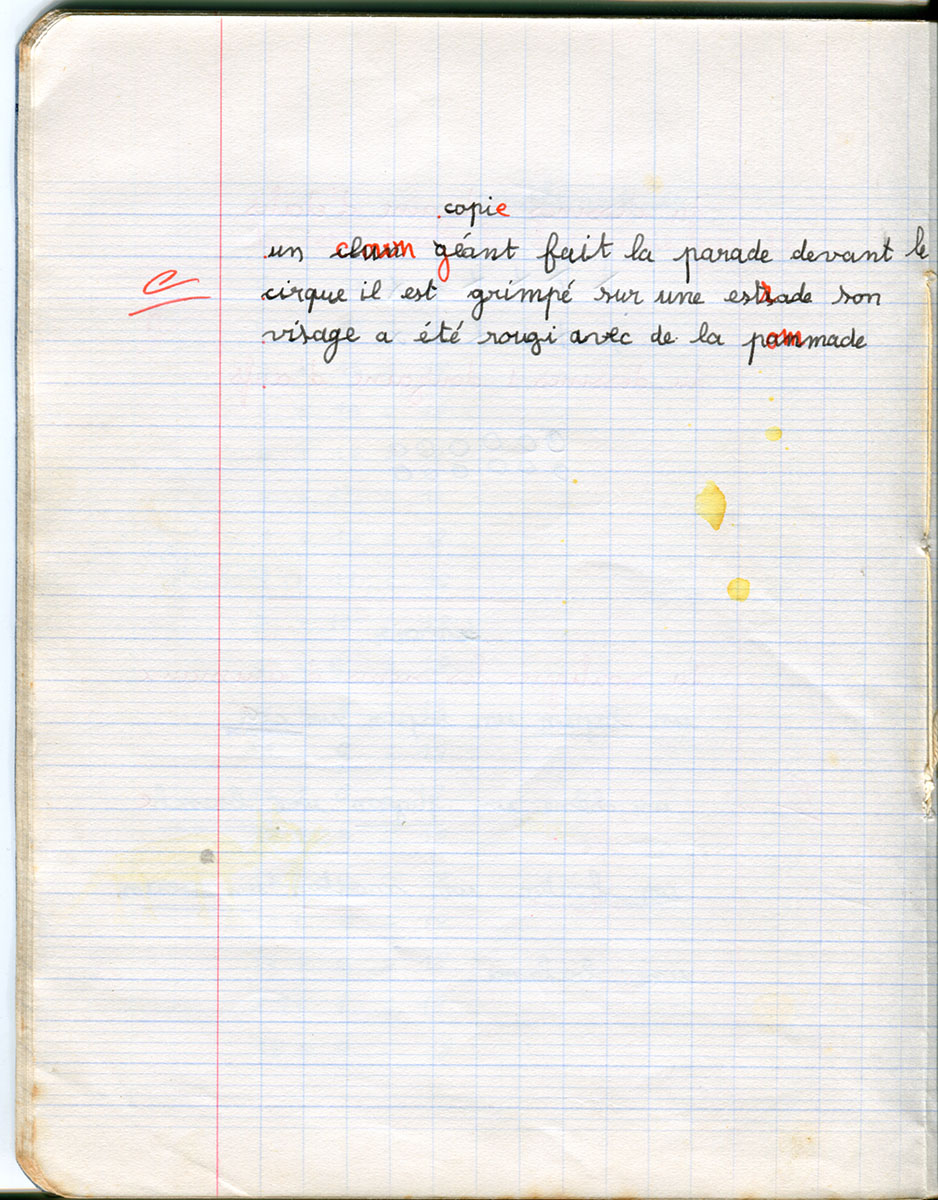 copie
un clown géant fait la parade devant le
cirque il est grimpé sur une estrade son
C
visage a été rougi avec de la pommade